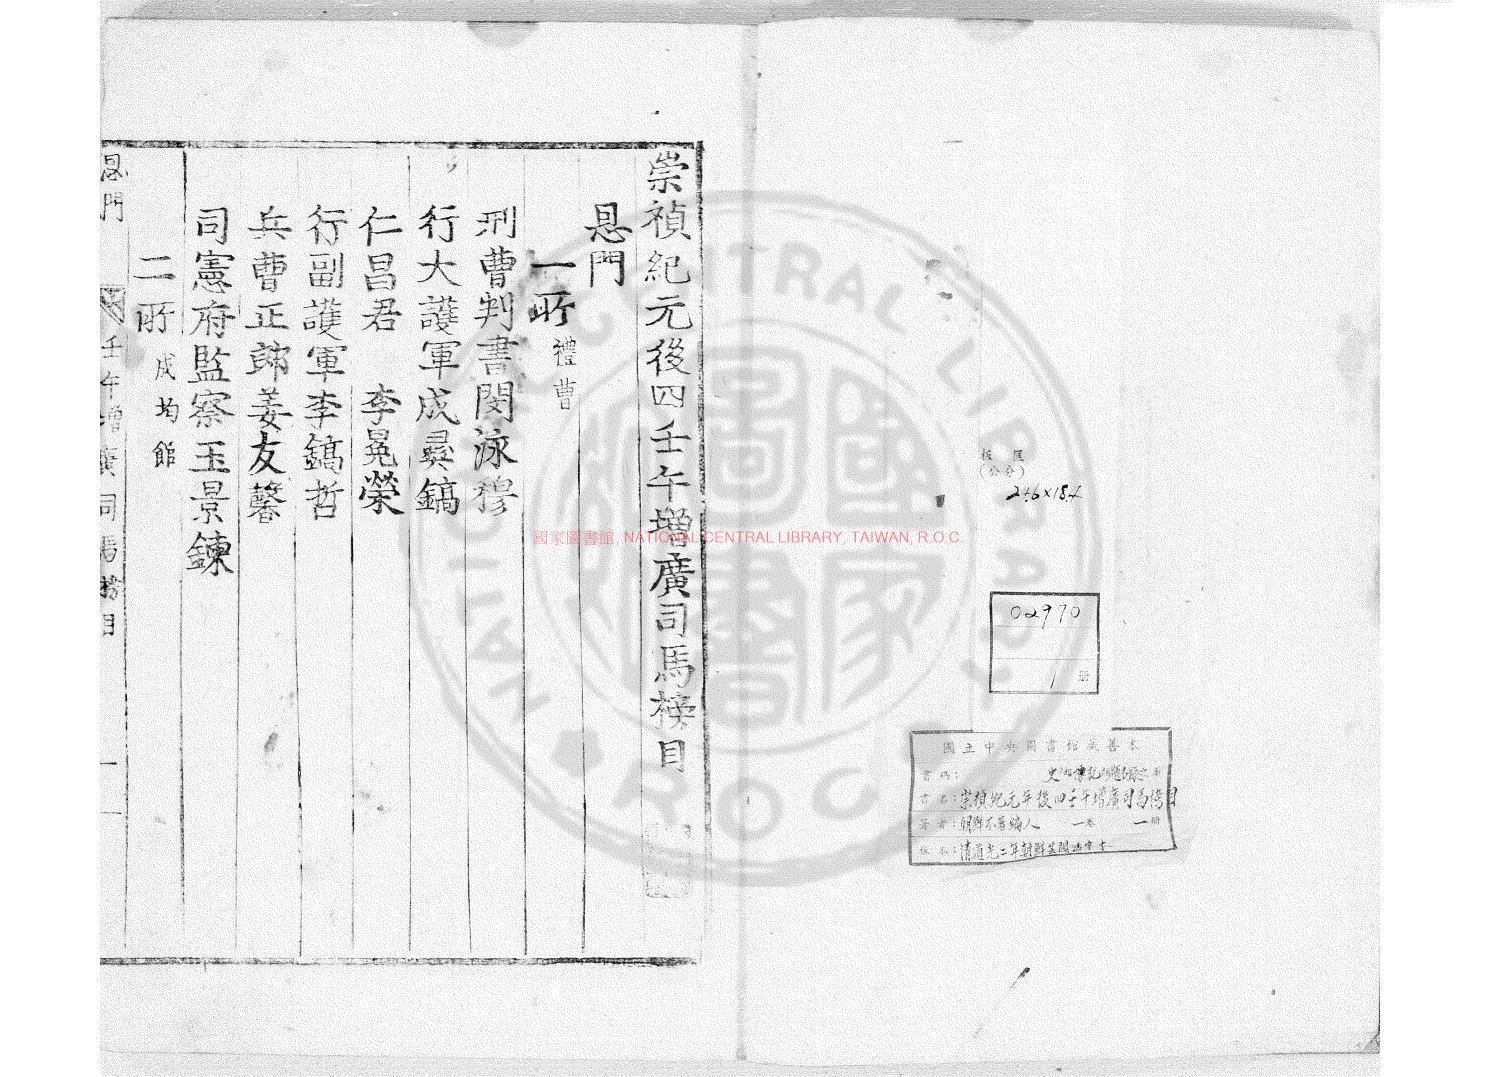 崇禎紀元後四壬午增廣司馬榜目
恩門
一所 禮曹
刑曹判書閔泳穆
行大護軍成彛鎬
仁昌君 李冕榮
行副護軍李鎬哲
兵曹正郎姜友馨
司憲府監察玉景鍊
二所 成均館
恩門 壬午增廣司馬榜目 一
板匡
(公分)
24.6×18.4
02970
1 册
國立中央圖書館藏善本
書碼:
書名:崇禎紀元年後四壬午增廣司馬榜目
著者:朝鮮不著編人 一卷 一册
板本:清道光二年朝鮮
國家圖書館, NATIONAL CENTRAL LIBRARY, TAIWAN, R.O.C
NATIONAL CENTRAL LIBRARY
R.O.C
國家圖書